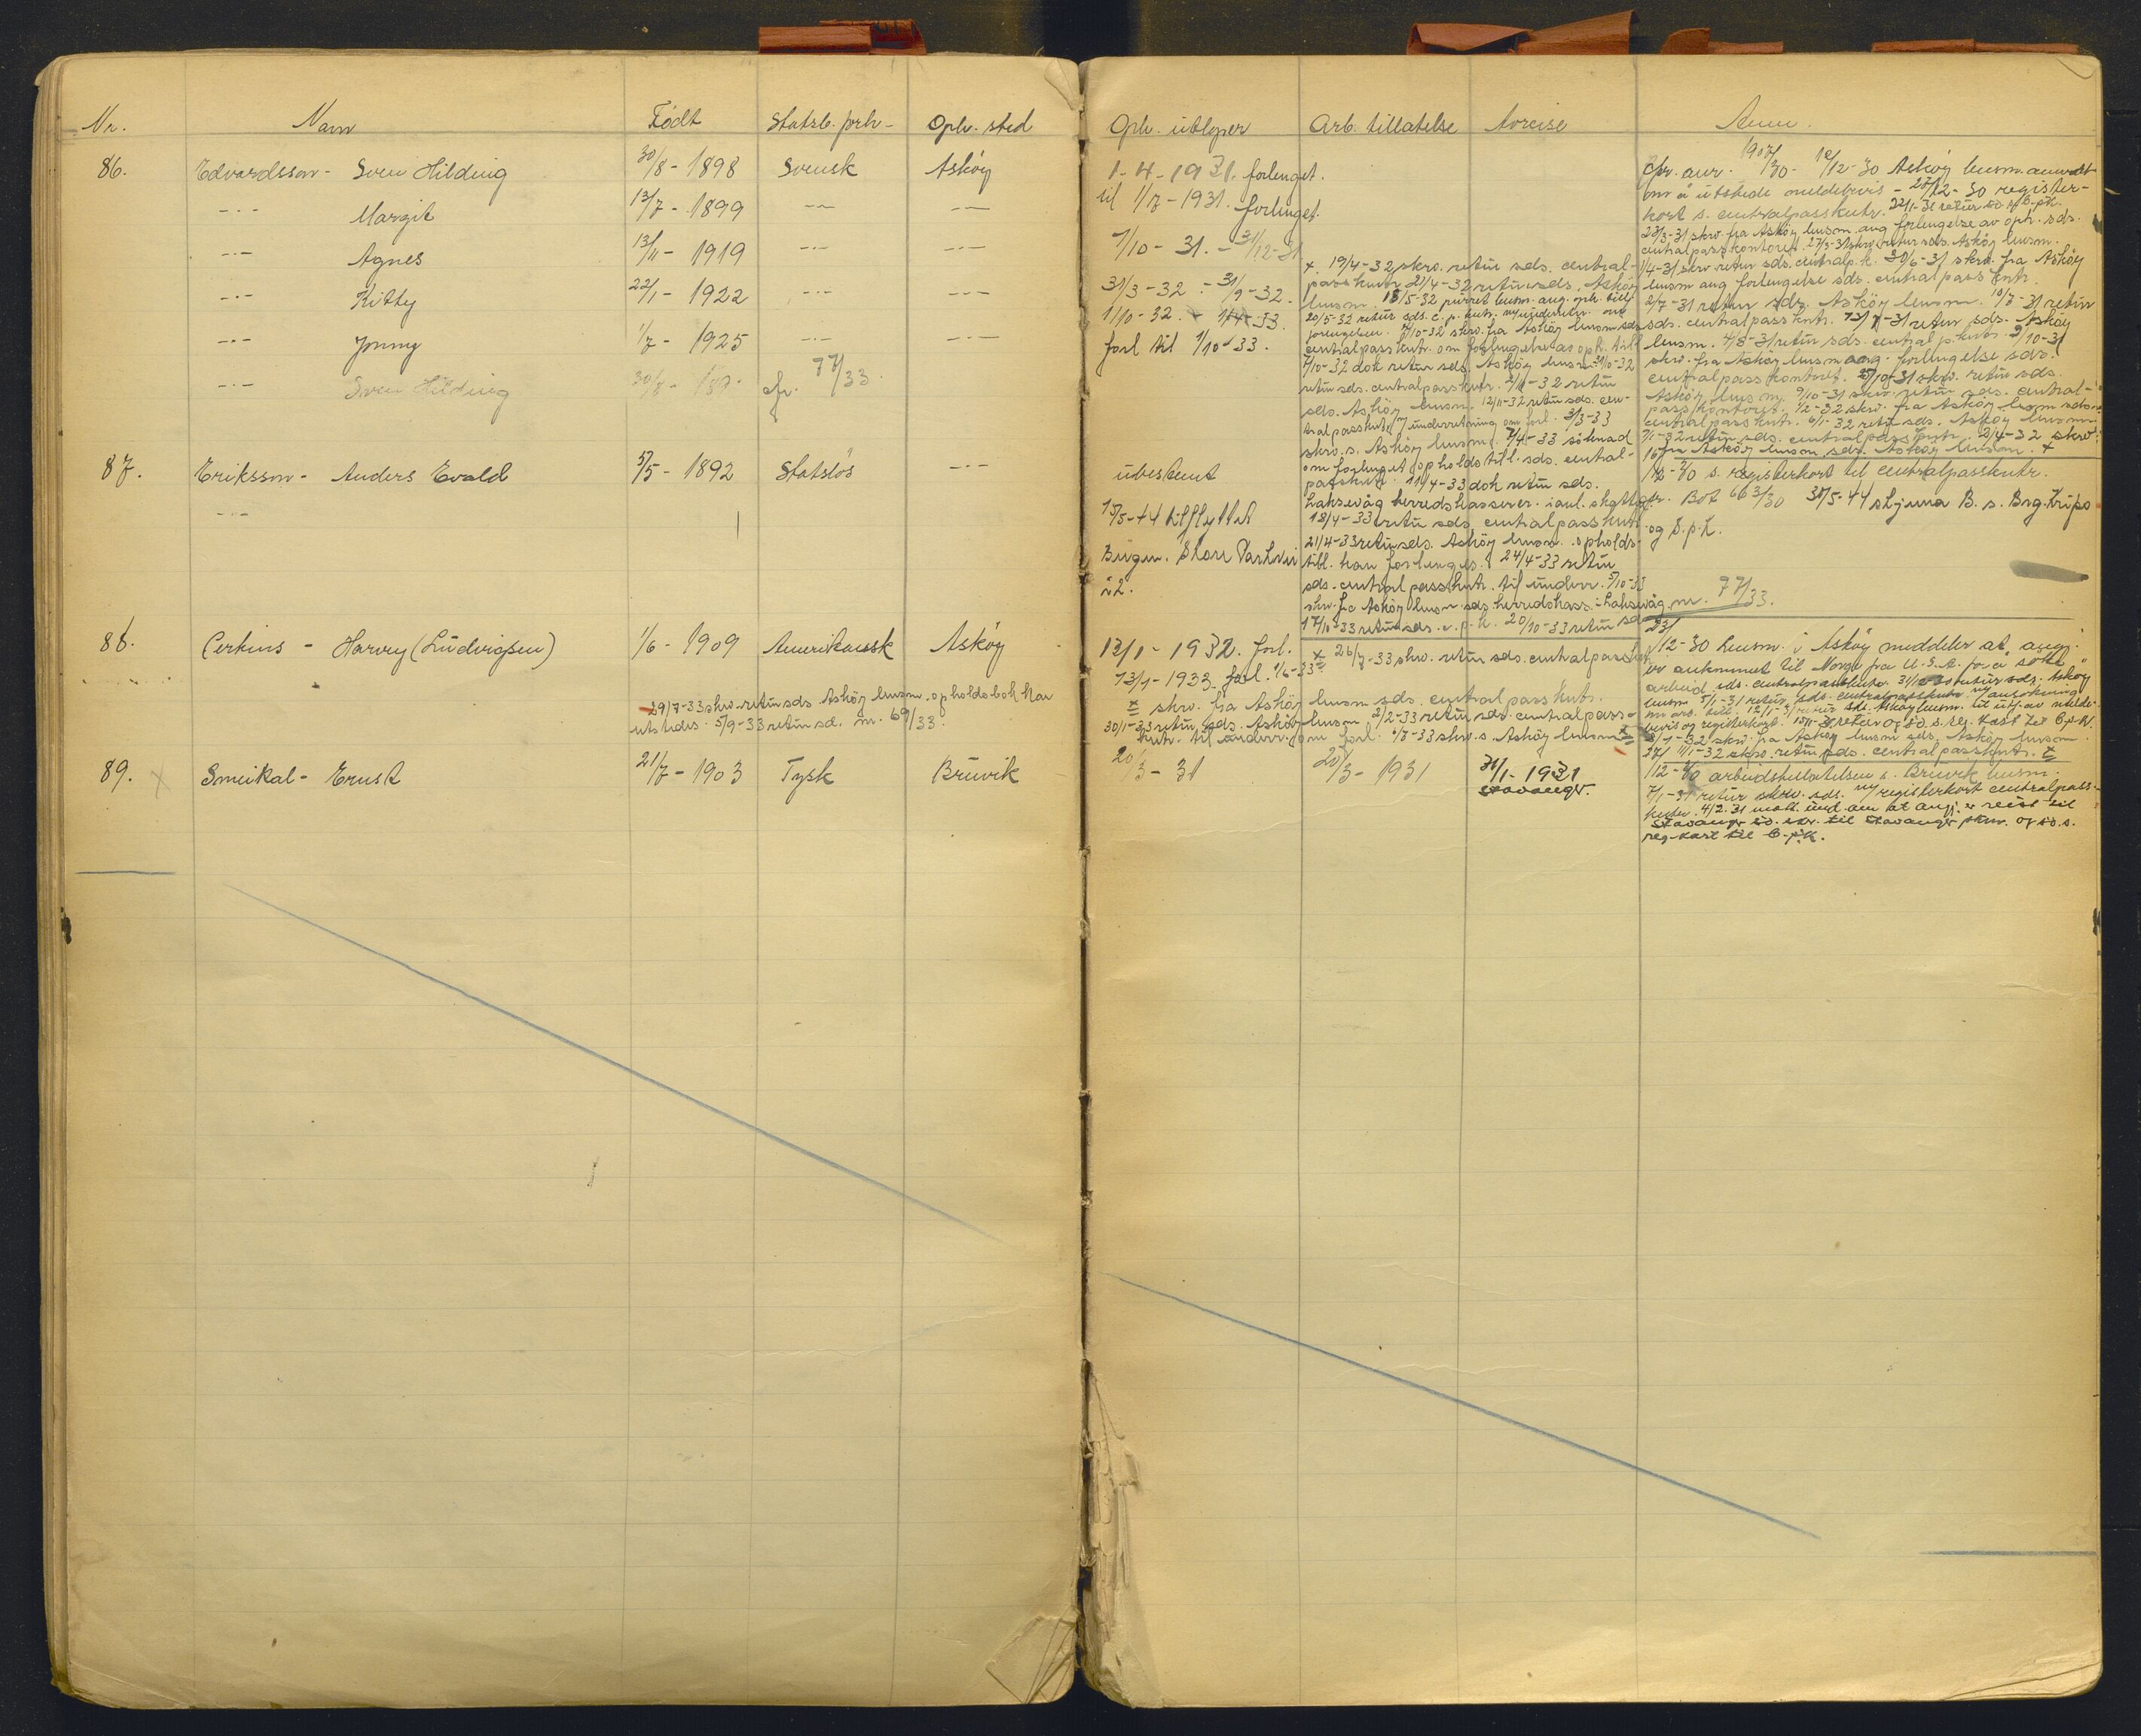 Nr. Navn Födt Statsb. frh- Oph. sted Oph. utløper Arb. tillatelse Avreise Anm.
86. Edvardsson - Sven Hilding 30/8 - 1898 Svensk Asköy 1-4-1931. forlenget.
-"- Margit 13/7 - 1899 -"- -"- til 1/7 - 1931. forlenget.
-"- Agnes 13/11 - 1919 -"- -"- 1/10 - 31. - 31/12-31
-"- Kitty 22/1 - 1922 -"- -"- 31/3-32 - 31/9-32.
-"- Jonny 1/7 - 1925 -"- -"- 1/10-32. 1/4-33.
forl til 1/10-33.
-"- Sven Hilding 30/8 - cfr. 77/33.
+ 19/4-32 skro. retur sds. central-
passkntr. 21/4-32 retur sds. Asköy
lensm. 18/5-32 purret lensm. ang. oph. till
20/5-32 retur sds. c. p. kntr.
7/10-32 skro. fra Asköy lensm sds
centralpasskntr. om forlengelse av oph. till
7/10-32 dok retur sds. Asköy lensm. 31/10-32
retur sds. centralpasskntr. 2/11-32 retur
sds. Asköy lensm. 12/11-32 retur sds. cen-
tralpasskntr. m/ underretning om forl. 3/3-33
skro. s. Asköy lensm. 7/4-33 söknad
om forlenget opholdstill. sds. central-
passkntr. 11/4-33 dok retur sds.
Laksevåg herredskasserer. i anl. skatt
18/4-33 retur sds. centralpasskntr.
21/4-33 retur sds. Asköy lensm. opholds-
till. kan forlenges. 24/4-33 retur
sds. centralpasskntr. til underr. 5/10-33
skro. fra Asköy lensm. sds. herredskass. i Laksevåg
17/10-33 retur sds. c. p. k. 20/10-33 retur sds
cfr. anr. 1907/30 - 10/12-30 Asköy lensm. anmodet
om å utstede meldebevis - 27/12-30 register-
kort s. centralpasskntr. 22/1-31 retur
23/3-31 skro. fra Asköy lensm. ang forlengelse av oph. sds.
centralpasskontoret. 27/3-31 skro. retur sds. Asköy lensm.
1/4-31 skro retur sds. centralp.k. 30/6-31 skro. fra Asköy
lensm ang forlengelse sds. centralpasskntr.
2/7-31 retur sds. Asköy lensm. 10/7-31 retur
sds. centralpasskntr. 13/7-31 retur sds. Asköy
lensm. 4/8-31 retur sds. centralp.kntr. 2/10-31
skro. fra Asköy lensm ang. forlengelse sds.
centralpasskontoret. 5/10-31 skro. retur sds.
Asköy lensm. 9/10-31 skro. retur sds. central-
passkontoret. 1/2-32 skro. fra Asköy lensm sds.
centralpasskntr. 6/1-32 retur sds. Asköy lensm
7/1-32 retur sds. centralpasskntr. 2/4-32 skro.
fra Asköy lensm sds. Asköy lensm. +
nr. 77/33.
87. Eriksson - Anders Evald 5/5 - 1892 Statslös -"- ubestemt
-"-
15/5-44 tilflyttet
Bergen. Store Parkvei
22.
s. registerkort til centralpasskntr.
cfr. Bot 663/30 30/5-44 stjerna B. s. Brg. Kripo
og S.p.k.
88. Perkins - Harvey (Ludvigsen) 1/6 - 1909 Amerikansk Asköy 13/1 - 1932. forl.
13/1 - 1933. forl. 1/6-33
29/7-33 skro. retur sds Asköy lensm. opholdsbok kan
utstedes. 5/9-33 retur sd. nr. 69/33.
x 26/7-33 skro. retur sds. centralpasskntr
x skro. fra Asköy lensm sds. centralpasskntr.
30/1-33 retur sds. Asköy lensm 2/2-33 retur sds. centralpass-
kntr. til underr. om forl. 6/3-33 skro. s. Asköy lensm
23/12-30 Lensm. i Asköy meddeler at angj.
er ankommet til Norge fra U.S.A. for å söke
arbeid sds. centralpasskntr. 31/12-30 retur sds. Asköy
lensm 5/1-31 retur sds. centralpasskntr m/ ansökning
om arb. till. 12/1-31 retur sds. Asköy lensm. til utf. av melde-
bevis og registerkort. 15/1-31 retur og s. reg. kort til C.p.K.
skro. fra Asköy lensm sds. Asköy lensm
11/1-32 skro. retur sds. centralpasskntr. x
89. Smeikal - Ernst 21/7 - 1903 Tysk Bruvik 20/3 - 31 20/3 - 1931 31/1-1931
Stavanger.
arbeidstillatelsen s. Bruvik lensm.
7/1-31 retur skro. sds. m/ registerkort centralpass-
kntr. 4/2-31 mott. und. om at angj. er reist til
Stavanger til Stavanger pkm. og s.
reg-kort til C.p.K.